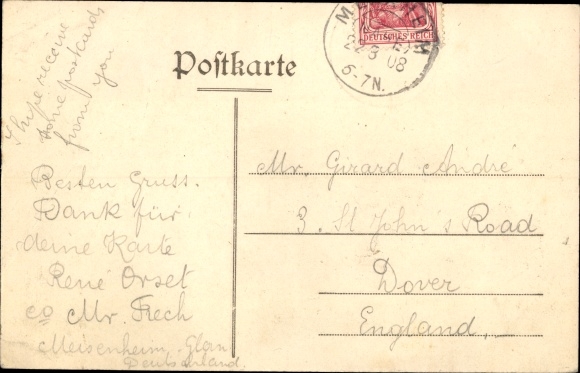 DEUTSCHES REICH
23 08
6-7N.
Postkarte
I hope receive
some postcards
from you
Besten Gruss.
Dank für
deine Karte
René Orset
co Mr. Frech
Meisenheim, Glan
Deutschland.
Mr. Girard André
3. St John's Road
Dover
England.